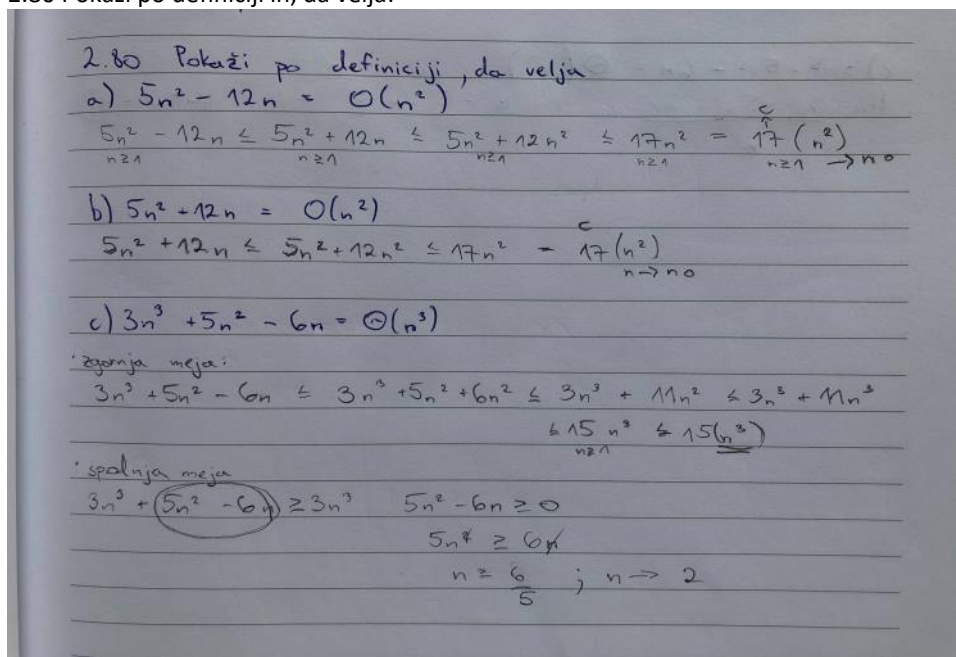 2.80 Pokaži po definiciji in, da velja:
2.80 Pokaži po definiciji, da velja
a) 5n² - 12n = O(n²)
5n² - 12n ≤ 5n² + 12n ≤ 5n² + 12n² ≤ 17n² = 17(n²)
n≥1 n≥1 n≥1 n≥1 n≥1 → n0
c
b) 5n² + 12n = O(n²)
c
5n² + 12n ≤ 5n² + 12n² ≤ 17n² = 17(n²)
n → n0
c) 3n³ + 5n² - 6n = Θ(n³)
· zgornja meja:
3n³ + 5n² - 6n ≤ 3n³ + 5n² + 6n² ≤ 3n³ + 11n² ≤ 3n³ + 11n³
≤ 15n³ ≤ 15(n³)
n≥1
· spodnja meja
3n³ + (5n² - 6n) ≥ 3n³ 5n² - 6n ≥ 0
5n² ≥ 6n
n ≥ 6/5 ; n → 2